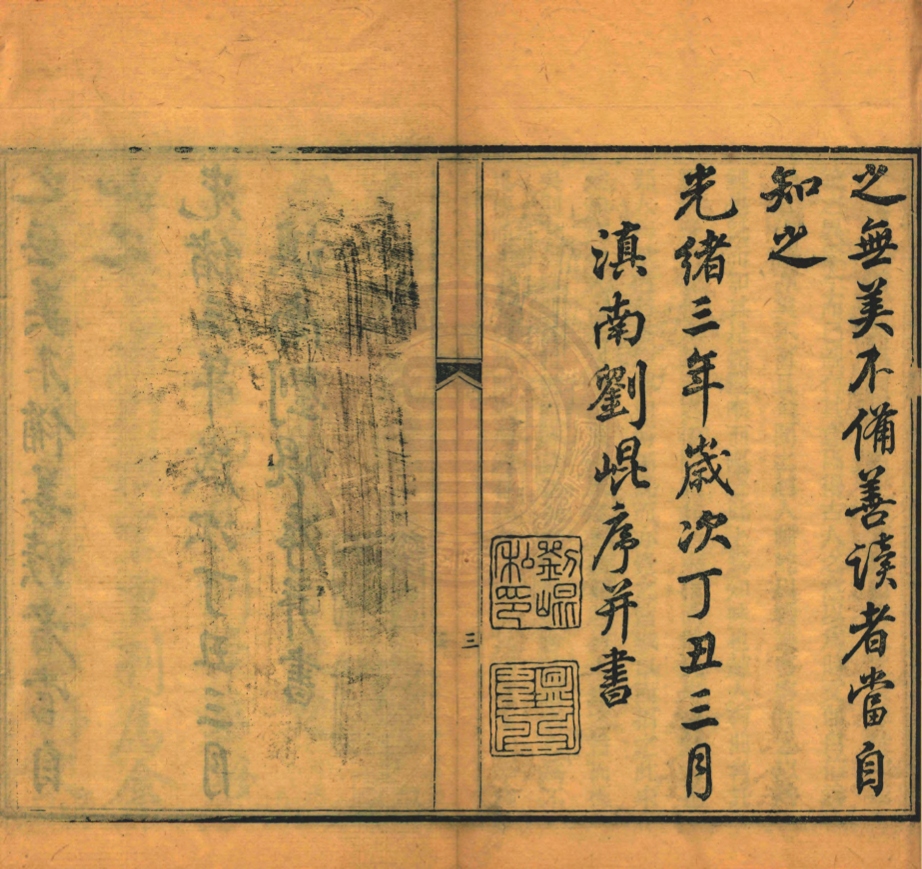 之無美不備善讀者當自
知之
光緒三年歲次丁丑三月
滇南劉崐序并書
劉崐
私印
三